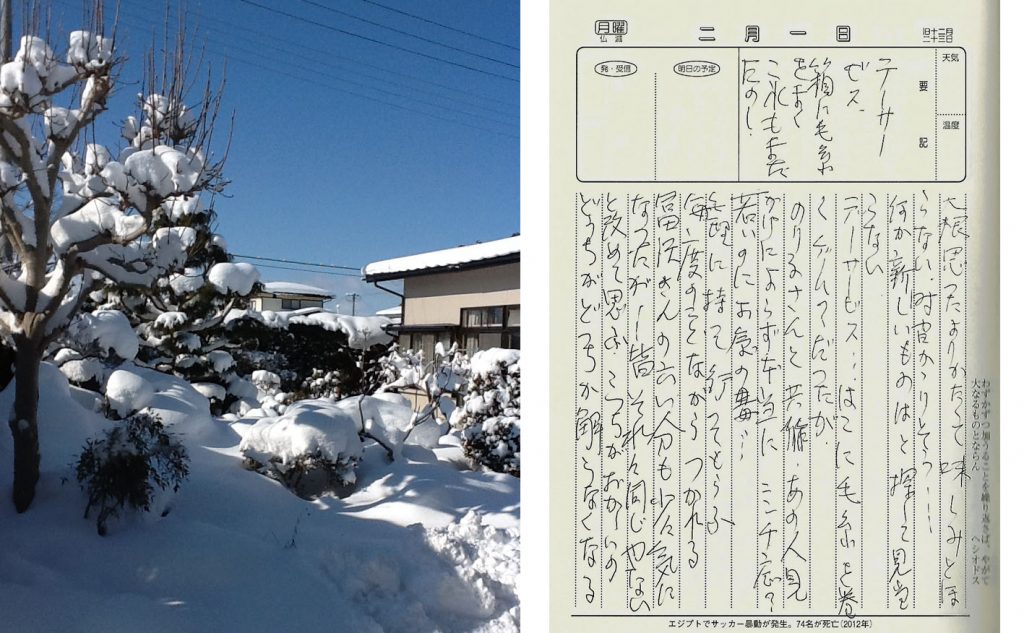 月曜
仏滅
二月一日
旧十二月
二十三日
天気
温度
要記
明日の予定
発・受信
テーサー
ビス、
箱に毛糸
をまく
これもまた
たのし
大根思ったよりかたくて味しみとま
らない、対皆かゝりそう…
何か新しいものはと探して見当
らない
テーサービス…はこに毛糸を巻
く ゲームだったが
のりるさんと共施、あの人見
かけによらず本当に
若いのにお気の毒…
無理に持って行ってもらふ
毎度のことながらつかれる
冨沢さんの云い分も少々気に
なったが、皆それぞれ同じやない
と改めて思ふ、こっちがおかしいの
どっちがどっちか解らなくなる
わずかずつ加うることを繰り返さば、やがて
大なるものとならん　ヘシオドス
エジプトでサッカー暴動が発生。74名が死亡(2012年)